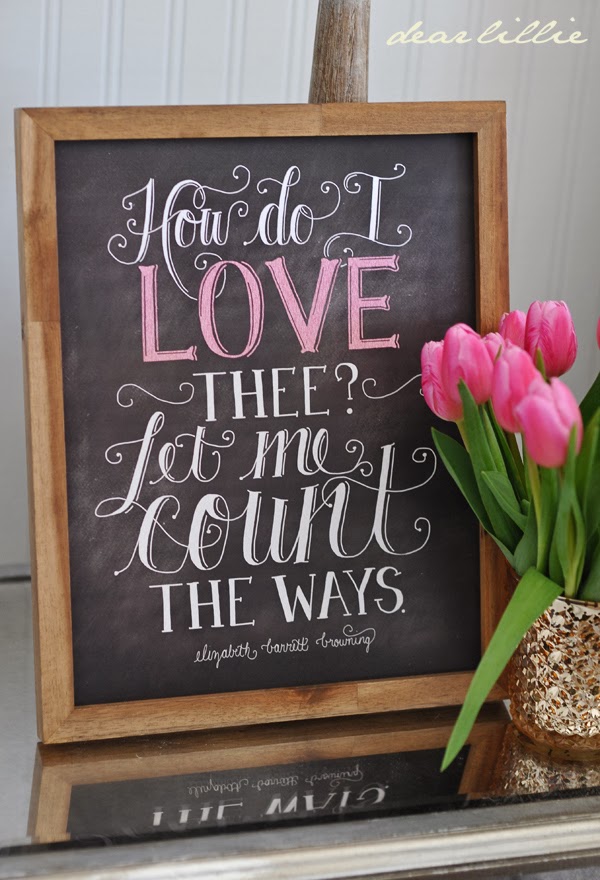 dear lillie
How do I
LOVE
THEE?
Let me
count
THE WAYS.
elizabeth barrett browning